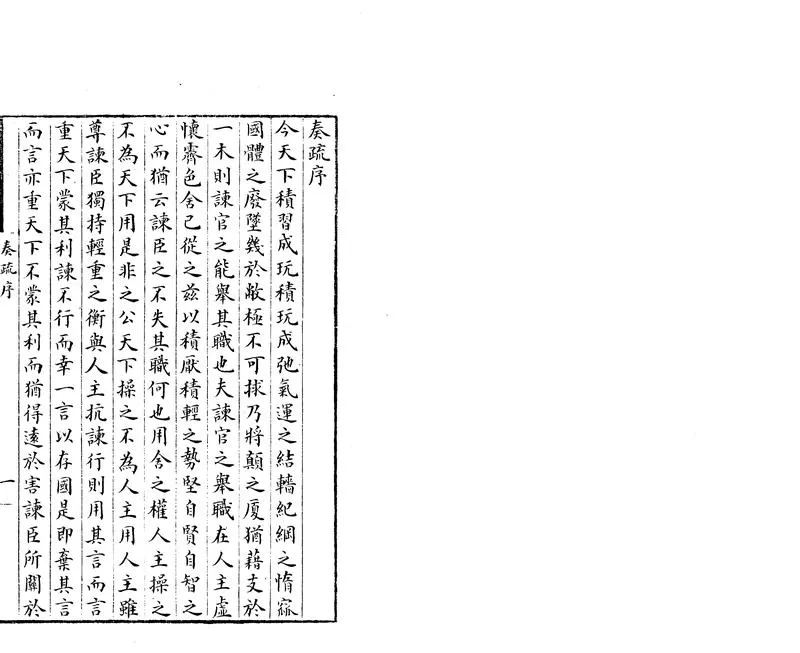 奏疏序
今天下積習成玩積玩成弛氣運之結轖紀綱之惰窳
國體之廢墜幾於敝極不可捄乃將顛之廈猶藉支於
一木則諫官之能舉其職也夫諫官之舉職在人主虛
懷霽色舍己從之兹以積厭積輕之勢堅自賢自智之
心而猶云諫臣之不失其職何也用舍之權人主操之
不為天下用是非之公天下操之不為人主用人主雖
尊諫臣獨持輕重之衡與人主抗諫行則用其言而言
重天下蒙其利諫不行而幸一言以存國是即棄其言
而言亦重天下不蒙其利而猶得遠於害諫臣所關於
奏疏序
一